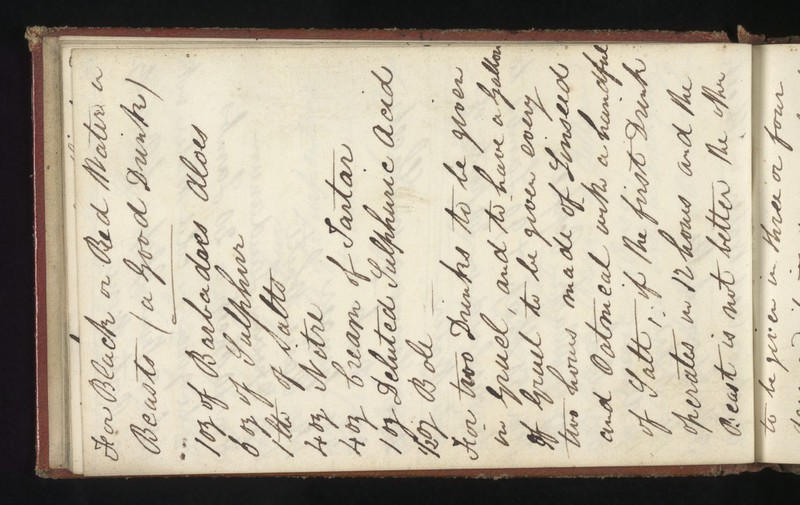 For Black or Red Water in
Beasts (a Good Drink)
1oz of Barbadoes Aloes
6 oz of Sulphur
1lb of Salts
4oz Nitre
4oz Cream of Tartar
1oz Deluted Sulphuric Acid
Bole
For two Drinks to be given
in Gruel, and to have a gallon
of Gruel to be given every
two hours made of Linseed
and Oatmeal with a handful
of Salt, if the first Drink
operates in 12 hours and the
Beast is not better the other
to be given in three or four